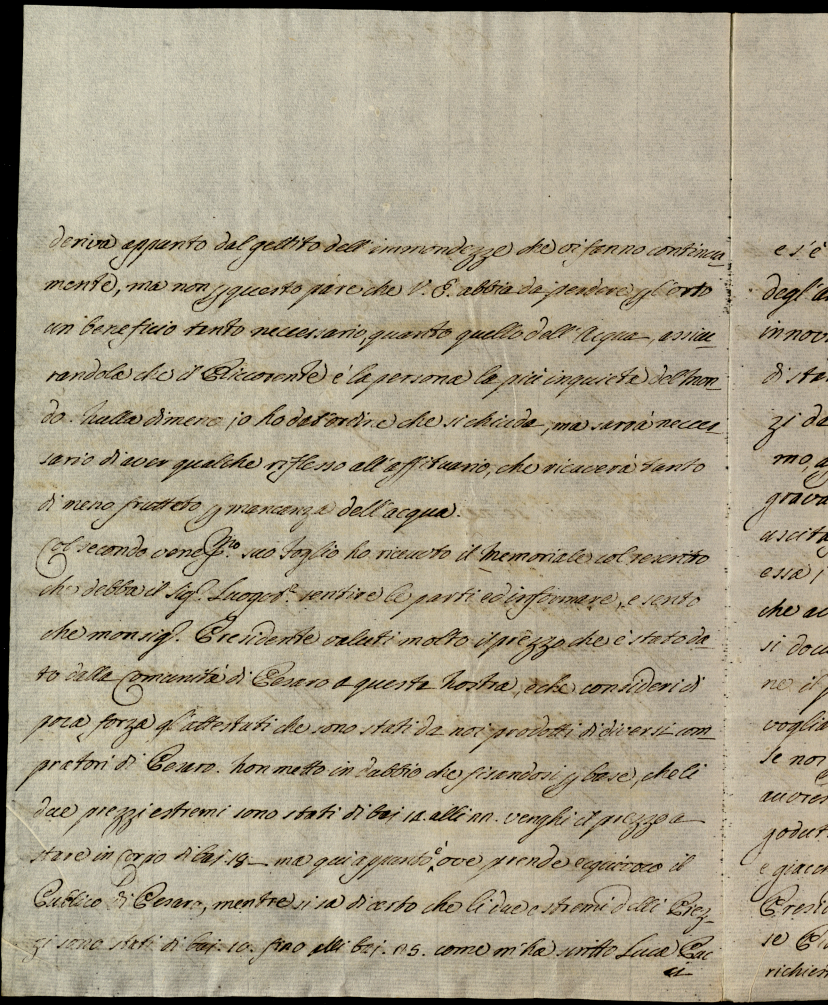 deriva appunto dal gettito dell'immondezze che vi fanno continua
mente, ma non p questo pare che V. E. abbia da perdere p l'orto
un beneficio tanto necessario, quanto quello dell'Acqua, assicu
randola che il Riccorente è la persona la più inquieta del mon
do. Nulla dimeno io ho dat'ordine che si chiuda, ma sarrà neces
sario di aver qualche riflesso all'affittuario, che ricaverà tanto
di meno frutteto p mancanza dell'acqua.
Col secondo suo foglio ho ricevuto il Memoriale col rescritto
che debba il Sig.r Luogot.e sentire le parti ed informare, e sento
che monsig.r Presidente valuti molto il prezzo che è stato da
to dalla Comunità di Pesaro a questa nostra, e che consideri di
poca forza gl'attestati che sono stati da noi prodotti di diversi com
pratori di Pesaro. Non metto in dubbio che fisandosi p base, che li
due prezzi estremi sono stati di baj. alli venghi il prezzo a
stare in Corpo di baj. 18 ma qui appunto è ove prende equivoco il
Publico di Pesaro, mentre si sa di certo che li due estremi delli Prez
zi sono stati di baj. 10. fino alli baj. come m'ha scritto Luca Pac
ci
e s'è
innov
di sta
zi da
mo,
grava
uscita
essa
che ac
si docu
ne il p
voglia
se non
godut
e giacch
Presid
richies